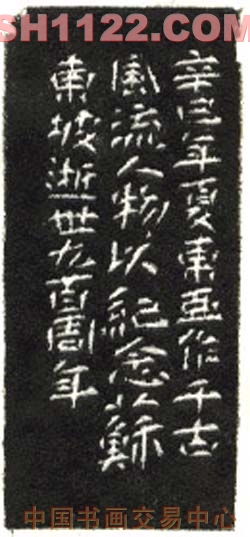 SH1122.COM
辛巳年夏東画作千古
風流人物以紀念蘇
東坡逝世九百周年
中国书画交易中心